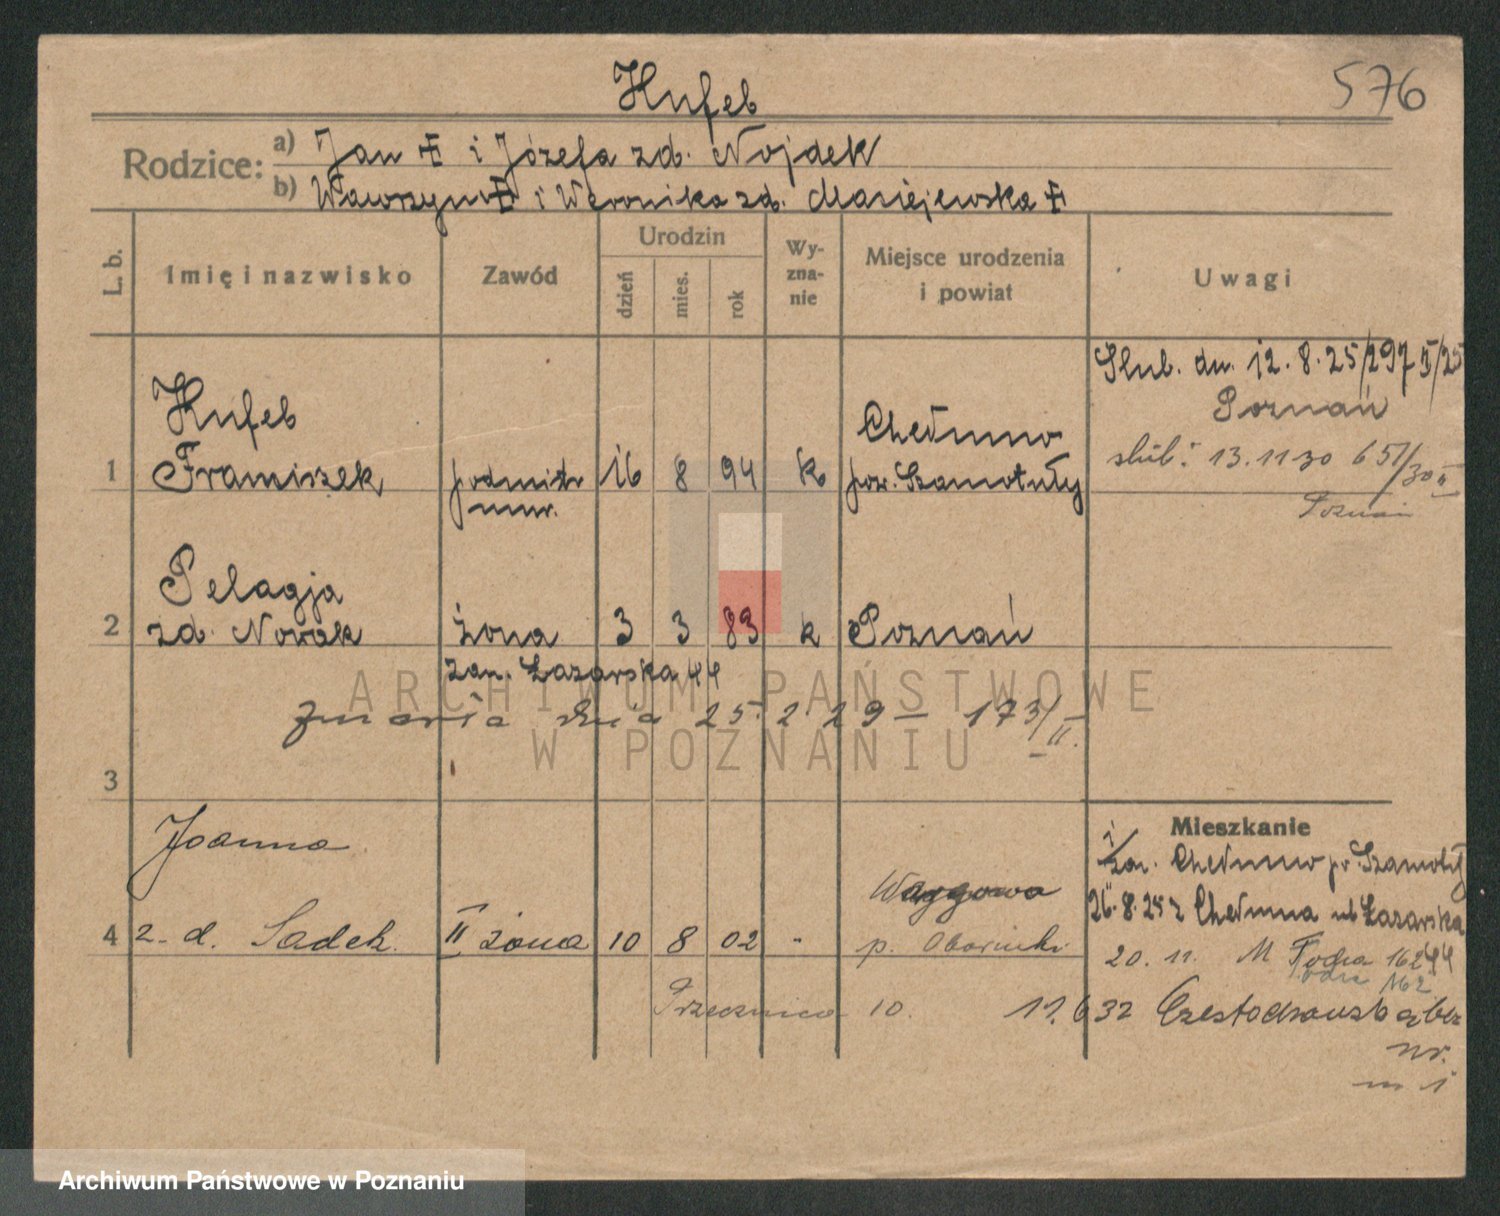 576
Hufeb
Rodzice: a) Jan i Józefa zd. Nojdek
b) Wawrzyn i Weronika zd. Maciejewska
L. b. Imię i nazwisko Zawód Urodzin dzień mies. rok Wy-zna-nie Miejsce urodzenia i powiat Uwagi
Ślub. dn. 12. 8. 25/297 II/25
Poznań
ślub: 13.11 30 651/30 II
Poznań
Hufeb
1 Franciszek podmistr mur. 16 8 94 k Chełmno pow. Szamotuły
Pelagja
2 zd. Nowak żona 3 3 83 k Poznań
zam. Łazarska 44
zmarła dnia 25. 2. 29 – 173/II.
3
Mieszkanie
Joanna
zam. Chełmno p. Szamotuły
26. 8. 25 z Chełmna ul. Łazarska 44
4 z. d. Sadek. II żona 10 8 02 - p. Obornicki
20. 11. M Fodra 162
Przecznica 10. 11. 6 32 Częstochowska bez nr.
m 1
ARCHIWUM PAŃSTWOWE
W POZNANIU
Archiwum Państwowe w Poznaniu